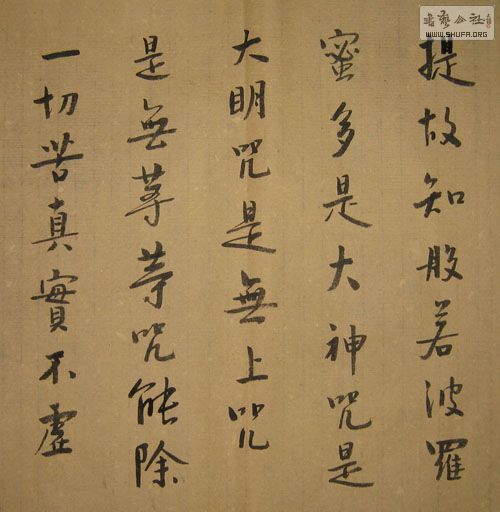 提故知般若波羅
蜜多是大神咒是
大明咒是無上咒
是無等等咒能除
一切苦真實不虛
書藝公社
WWW.SHUFA.ORG